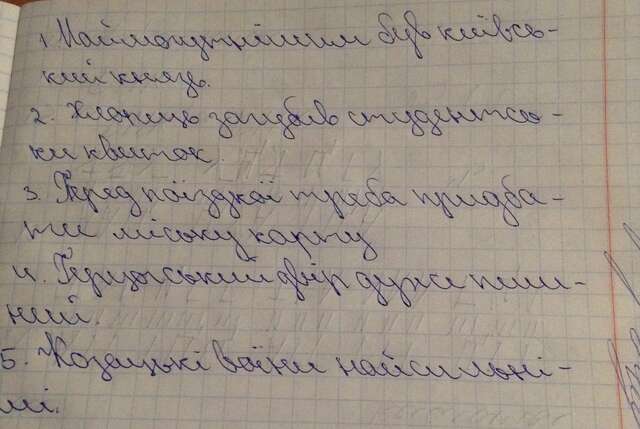 1. Наймогутнішим був київсь-
кий князь.
2. Хлопець загубив студентсь-
ки квиток.
3. Перед поїздкої треба придба-
ти міську карту
4. Герцогський двір дуже пиш-
ний.
5. Козацькі воїни найсильні-
ші.